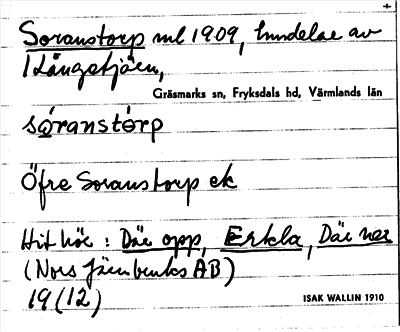 Soranstorp ml 1909, hmdelae av
1 Långetjäen,
Gräsmarks sn, Fryksdals hd, Värmlands län
sóranstórp
Öfre Soranstorp ek
Hit hör: Där opp, Erkla, Där ner
(Nors Järnbruks AB)
19 (12)
ISAK WALLIN 1910